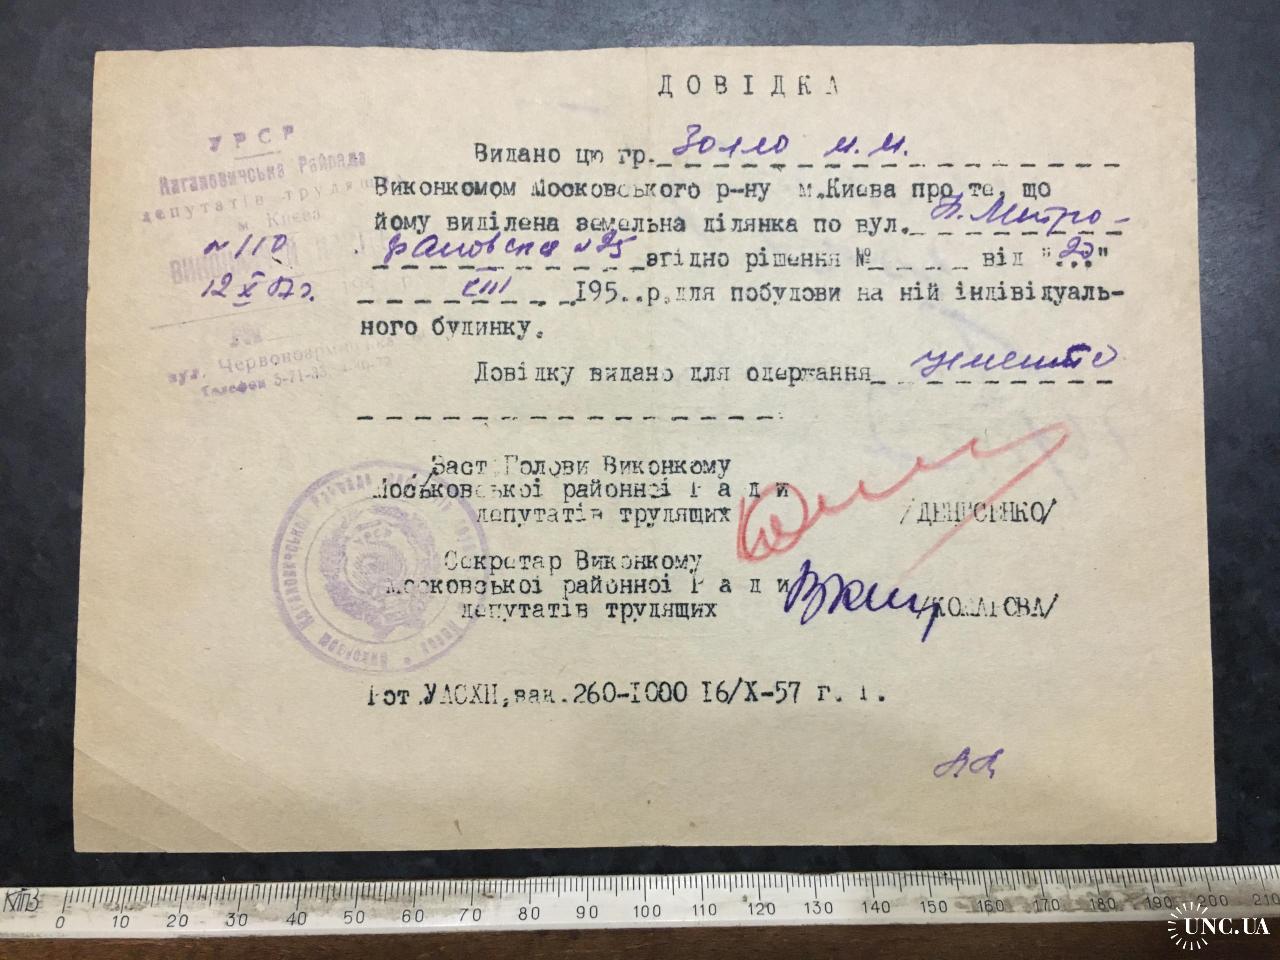 ДОВІДКА
УРСР
Кагановичська Райрада
депутатів трудящих
м. Києва
№ 110
12 X 57 р.
вул. Червоноармійська
Телефон 5-71-35
Видано цю гр. Золло М.М.
Виконкомом Московського р-ну м.Києва про те, що
йому виділена земельна ділянка по вул. Митро-
фановская №25 згідно рішення № від "20"
VIII 195 р. для побудови на ній індівідуаль-
ного будинку.
Довідку видано для одержання цемента
Заст.Голови Виконкому
Московської районної Р а д и
депутатів трудящих /ДЕНИСЕНКО/
Секретар Виконкому
Московської районної Р а д и
депутатів трудящих /КОМАРОВА/
Рот.УАСХН, зак. 260-1000 16/X-57 г.
КПЗ
0 10 20 30 40 50 60 70 80 90 100 110 120 130 140 150 160 170 180 190 200 210
UNC.UA